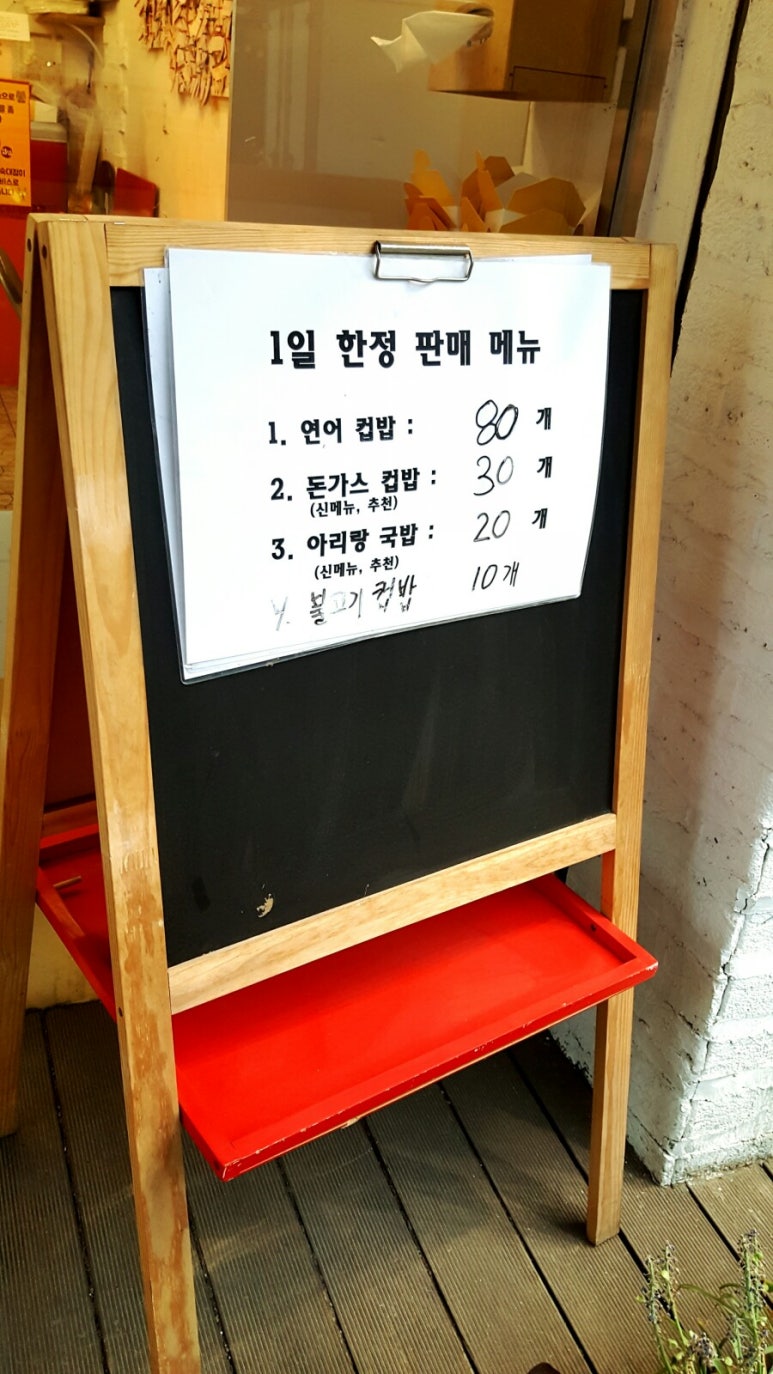 1일 한정 판매 메뉴
1. 연어 컵밥 : 80 개
2. 돈가스 컵밥 : 30 개
(신메뉴, 추천)
3. 아리랑 국밥 : 20 개
(신메뉴, 추천)
4. 불고기 컵밥 10개